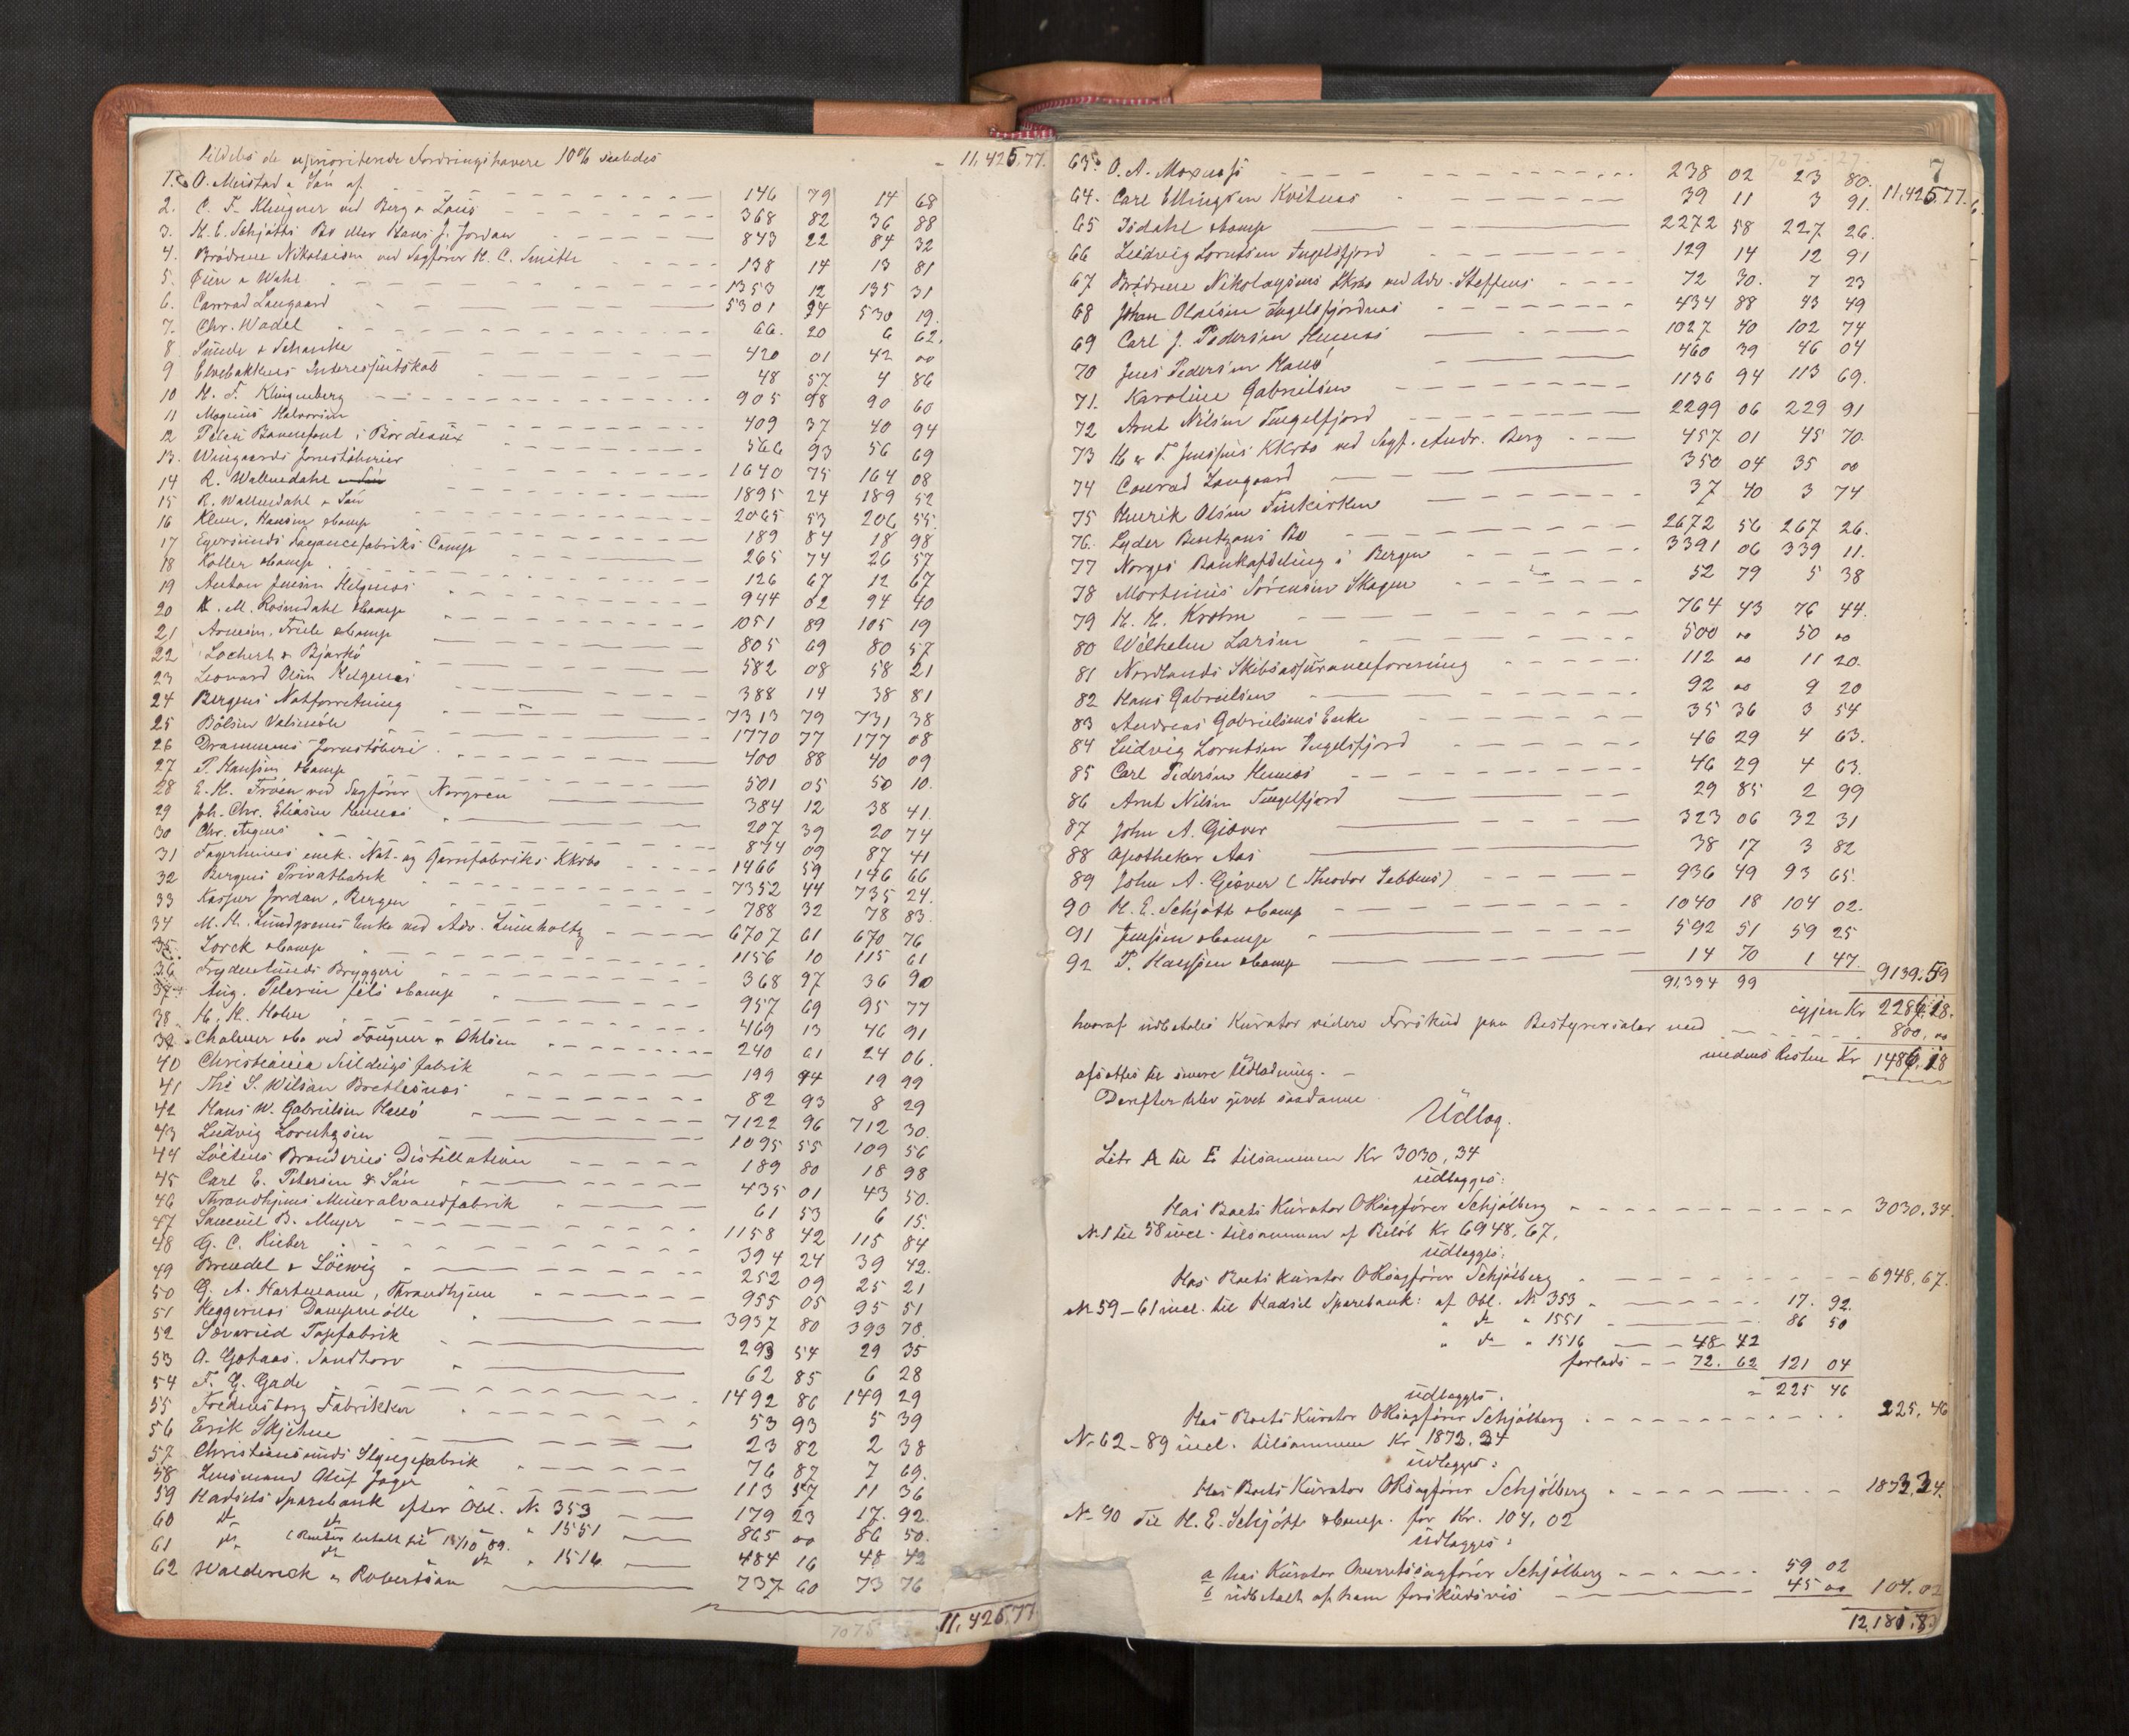 tildeles de uprioriterede Fordringshavere 10% saaledes - 11,425,77.
1. O. Meistad & Søn af 146 79 14 68
2. C. F. Klingner ved Berg & Lous 368 82 36 88
3. H. E. Schjøtts Bo eller Hans J. Jordan 843 22 84 32
4. Brødrene Nikolaisen ved Sagfører H. C. Smith 138 14 13 81
5. Øien & Wahl 1353 12 135 31
6. Conrad Langaard 5301 94 530 19.
7. Chr. Wadel 66. 20 6 62.
8 Sunde & Schanke 420 01 42 00
9 Elvebakkens Interessentskab 48 57 4 86
10 H. F. Klingenberg 905 98 90 60
11 Magnus Halvorsen 409 37 40 94
12 Bannefont i Bordeaux 566 93 56 69
13. Wingaards Jernstøberier 1640 75 164 08
14 R. Wallendahl 1895 24 189 52
15 R. Wallendahl & Søn 2065 53 206 55.
16 Klem, Hansen & Comp 189 84 18 98
17 Egersunds Fayancefabriks Comp 265 74 26 57
18 Koller & Comp. 126 67 12 67
19 Anton Jensen Helgenes 944 02 94 40
20 K. M. Rosendahl & Comp 1051 89 105 19
21 Arnesen, Friele & Comp 805 69 80 57
22 Lochert & Bjarkø 582 08 58 21
23 Leonard Olsen Helgenes 388 14 38 81
24 Bergens Notforretning 7313 79 731 38
25 Bølsen Valsmølle 1770 77 177 08
26 Drammens Jernstøberi. 400 88 40 09
27 P. Hanssen & Comp 501 05 50 10.
28 E. H. Frøen ved Sagfører Norgren 384 12 38 41.
29 Joh. Chr. Eliasen Hennes 207 39 20 74
30 Chr. Aigens 874 09 87 41
31 Fagerheims enk. Not- og Garnfabriks Kkrbo 1466 59 146 66
32 Bergens Privatbank 7352 44 735 24.
33 Kasper Jordan, Bergen 788 32 78 83.
34 M. H. Lundgrens Enke ved Adv. Leinholtz 6707 61 670 76
35. Lorck & Comp 1156 10 115 61
36 Frydenlunds Bryggeri 368 97 36 90
37 Aug. Petersen fils & Comp 957 69 95 77
38 H. H. Holm 469 13 46 91
39 Chalmer & Co ved Fougner & Ohlsen 240 61 24 06.
40 Christiania Seildugsfabrik 199 94 19 99
41 Ths S. Wilson Bretlesnes 82 93 8 29
42 Hans W. Gabrielsen Hanø 7122 96 712 30.
43 Ludvig Lorentzen 1095 55 109 56
44 Løitens Brænderies Distillation 189 80 18 98
45 Carl E. Petersen & Søn 435 01 43 50.
46 Throndhjems Mineralvandfabrik 61 53 6 15.
47 Samuel B. Meyer 1158 42 115 84
48 G. C. Rieber 394 24 39 42.
49 Brendel & Löewig 252 09 25 21
50 G. A. Hartmann, Throndhjem 955 05 95 51
51 Heggernes Dampmølle 3937 80 393 78.
52 Søvereid Tapfabrik 293 54 29 35
53 A. Gotaas. Sandhorn 62 85 6 28
54 F. G. Gade 1492 86 149 29
55 Fredensborg Fabrikker 53 93 5 39
56 Erik Skjelme 23 82 2 38
57 Christiansunds fabrik 76 87 7 69.
58 Lensmand Oluf Jager 113 57 11 36
59 Hadsels Sparebank efter Obl. No 353 179 23 17. 92.
60 do do " 1551 865 00 86 50.
61 do (Renter betalt til 15/10 89. do do " 1516 484 16 48 42
62 Walderick & Robertson 737 60 73 76
7075 11,425,77
7075.27. 7
63. O. A. Moxnes 238 02 23 80. 11,425.77.
64. Carl Ellingsen Kvitnes 39 11 3 91.
65 Isdahl & Comp 2272 58 227 26.
66 Ludvig Lorntsen Ingelsfjord 129 14 12 91
67 Brødrene Nikolaysens Kkrbo ved Adv. Steffens 72 30. 7 23
68 Johan Olaisen Ingelsfjordnes 434 88 43 49
69 Carl J. Pedersen Hennes 1027 40 102 74
70 Jens Pedersen Hanø 460 39 46 04
71. Karoline Gabrielsen 1136 94 113 69.
72 Arnt Nilsen Ingelsfjord 2299 06 229 91
73 H & F. Jensens Kkrbo ved Sagf. Andr. Berg 457 01 45 70.
74 Conrad Langaard 350 04 35 00
75 Henrik Olsen Finkirken 37 40 3 74
76. Lyder Bentzons Bo 2672 56 267 26.
77 Norges Bankafdeling i Bergen 3391 06 339 11.
78 Mortinus Sørensen Skagen 52 79 5 38
79 H. H. Krohn 764 43 76 44.
80 Wilhelm Larsen 500 00 50 00
81 Nordlands Skibsassuranceforening 112 00 11 20.
82 Hans Gabrielsen 92 00 9 20
83 Andreas Gabrielsens Enke 35 36 3 54
84 Ludvig Lorntsen Ingelsfjord 46 29 4 63.
85 Carl Pedersen Hennes 46 29 4 63.
86 Arnt Nilsen Ingelfjord 29 85 2 99
87 John A. Giæver 323 06 32 31
88 Apotheker Aas 38 17 3 82
89 John A. Giæver (Theodor Jebbens) 936 49 93 65.
90 H. E. Schjøtt & Comp 1040 18 104 02.
91 Jensen & Comp 592 51 59 25
92 P. Hanssen & Comp 14 70 1 47.
91,394 99 9139.59
igjen Kr 2286.18.
hvoraf udbetales Kurator videre Forskud paa Bestyrersalær med 800,00
medens Resten Kr 1486.18
afsættes til senere Udlodning.
Derefter blev givet saadanne
Udlæg.
Litr A til E tilsammen Kr 3030,34
udlægges:
Hos Boets Kurator ORsagfører Schjølberg 3030.34.
No 1 til 58 incl. tilsammen af Beløb Kr 6948,67,
udlægges:
Hos Boets Kurator ORsagfører Schjølberg 6948,67.
No 59-61 incl. til Hadsel Sparebank: af Obl. No 353 17. 92.
" do " 1551 86 50
" do " 1516 48 42
forlods 72. 62 121 04
= 225 46
udlægges.
Hos Boets Kurator ORsagfører Schjølberg 225,46
No 62-89 incl. tilsammen Kr 1873.34
udlægges:
Hos Boets Kurator ORsagfører Schjølberg 1873.34.
No 90 Til H. E. Schjøtt & Comp. for Kr. 104,02
udlægges:
a hos Kurator Overretssagfører Schjølberg 59 02
b udbetalt af ham forskudsvis 45 00 104.02
12,181.83